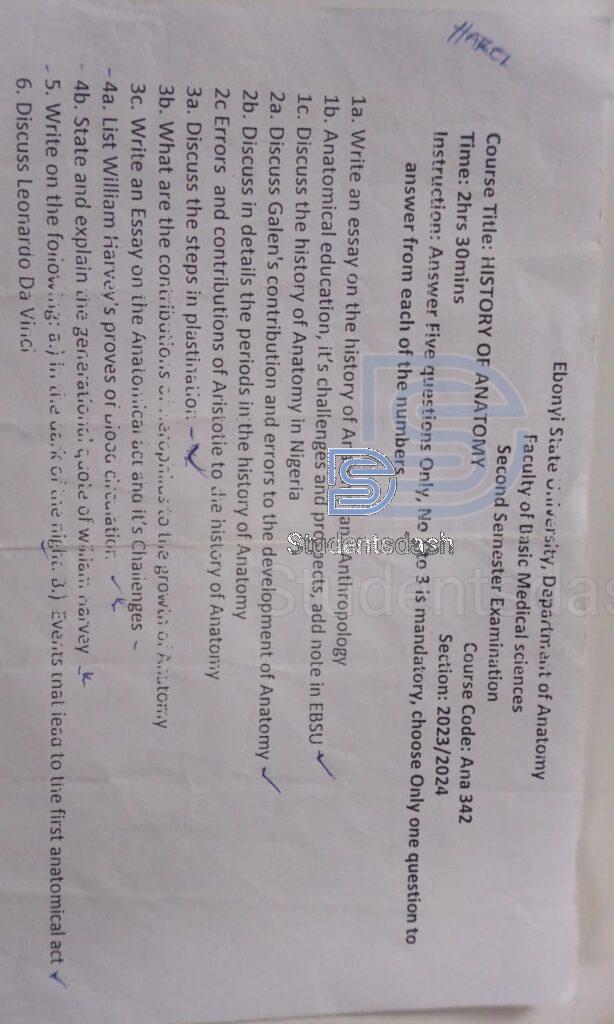 HARCL
Ebonyi State University, Department of Anatomy
Faculty of Basic Medical sciences
Second Semester Examination
Course Title: HISTORY OF ANATOMY Course Code: Ana 342
Time: 2hrs 30mins Section: 2023/2024
Instruction: Answer Five questions Only, No to 3 is mandatory, choose Only one question to
answer from each of the numbers
1a. Write an essay on the history of Anthropology
1b. Anatomical education, it's challenges and prospects, add note in EBSU
1c. Discuss the history of Anatomy in Nigeria
2a. Discuss Galen's contribution and errors to the development of Anatomy
2b. Discuss in details the periods in the history of Anatomy
2c Errors and contributions of Aristotle to the history of Anatomy
3a. Discuss the steps in plastination
3b. What are the contributions of Herophilus to the growth of Anatomy
3c. Write an Essay on the Anatomical act and it's Challenges
4a. List William Harvey's proves of blood circulation
4b. State and explain the generational quote of William Harvey
5. Write on the following: a.) in the dark of the night. 3.) Events that lead to the first anatomical act
6. Discuss Leonardo Da Vinci
Studentsdash
Studentsdas